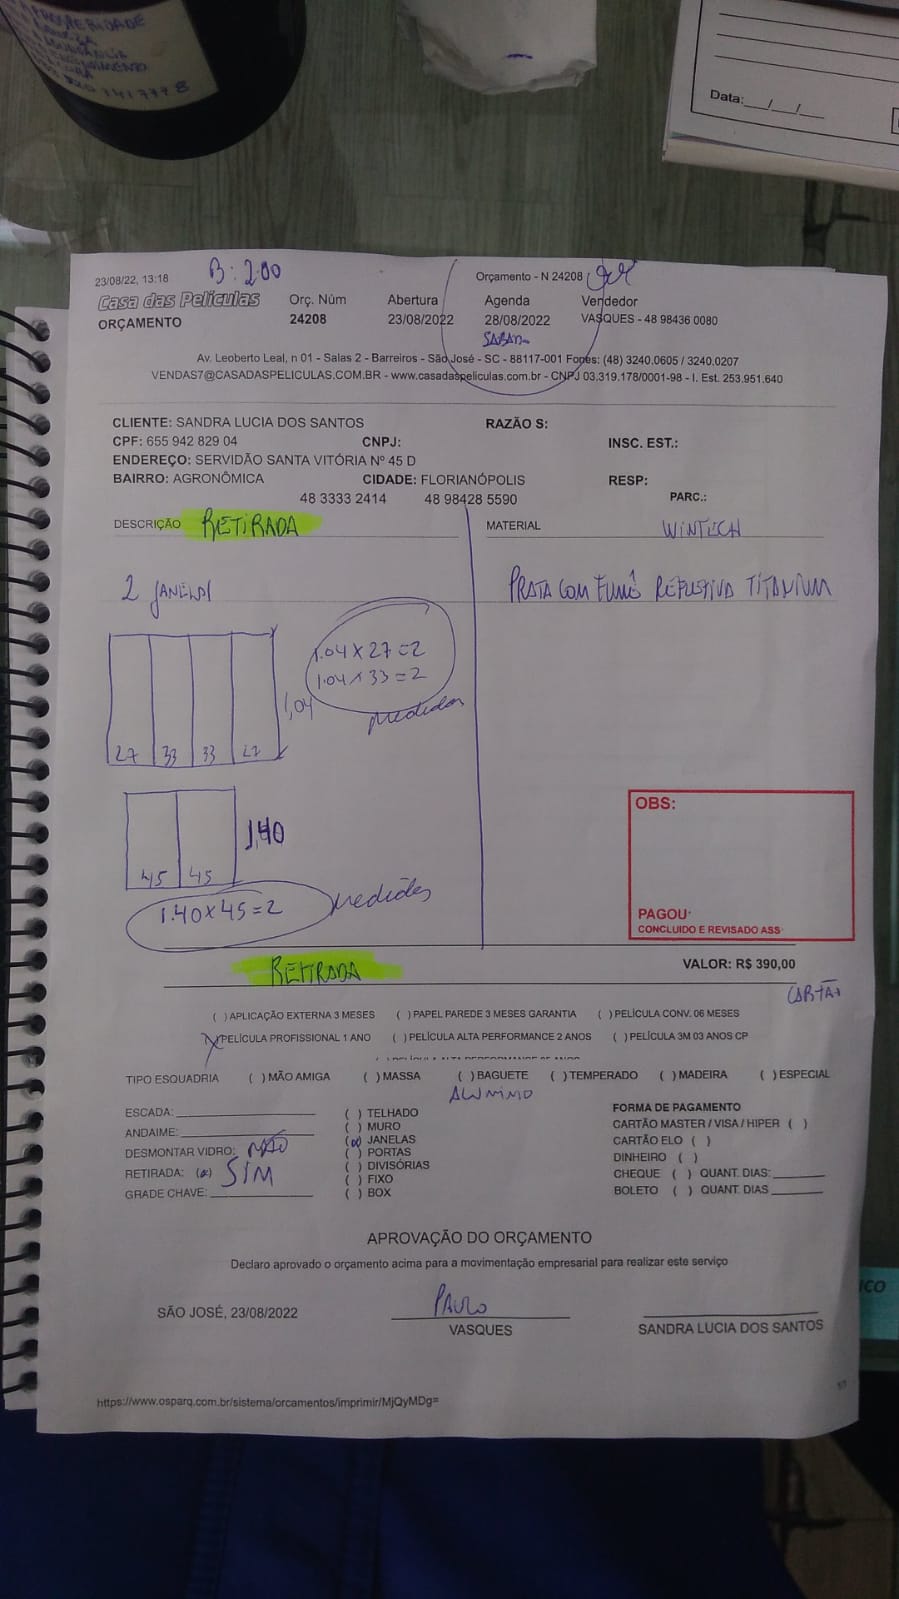 Data:__/__/__
23/08/22, 13:18
B: 2.00
Orçamento - N 24208
Casa das Películas
Orç. Núm
Abertura
Agenda
Vendedor
ORÇAMENTO
24208
23/08/2022
28/08/2022
VASQUES - 48 98436 0080
Av. Leoberto Leal, n 01 - Salas 2 - Barreiros - São José - SC - 88117-001 Fones: (48) 3240.0605 / 3240.0207
VENDAS7@CASADASPELICULAS.COM.BR - www.casadaspeliculas.com.br - CNPJ 03.319.178/0001-98 - I. Est. 253.951.640
CLIENTE: SANDRA LUCIA DOS SANTOS
RAZÃO S:
CPF: 655 942 829 04
CNPJ:
INSC. EST.:
ENDEREÇO: SERVIDÃO SANTA VITÓRIA Nº 45 D
BAIRRO: AGRONÔMICA
CIDADE: FLORIANÓPOLIS
RESP:
48 3333 2414
48 98428 5590
PARC.:
DESCRIÇÃO RETIRADA
MATERIAL
WINTECH
2 JANELAS
PRATA COM FUMÊ REFLETIVA TITANIUM
1.04 X 27 = 2
1.04 X 33 = 2
1,04
medidas
27 33 33 27
1,40
45 45
1.40 X 45 = 2
medidas
OBS:
PAGOU
CONCLUIDO E REVISADO ASS
RETIRADA
VALOR: R$ 390,00
CARTÃO
( ) APLICAÇÃO EXTERNA 3 MESES ( ) PAPEL PAREDE 3 MESES GARANTIA ( ) PELÍCULA CONV. 06 MESES
(X) PELÍCULA PROFISSIONAL 1 ANO ( ) PELÍCULA ALTA PERFORMANCE 2 ANOS ( ) PELÍCULA 3M 03 ANOS CP
TIPO ESQUADRIA ( ) MÃO AMIGA ( ) MASSA ( ) BAGUETE ( ) TEMPERADO ( ) MADEIRA ( ) ESPECIAL
ALUMINIO
ESCADA:
( ) TELHADO
FORMA DE PAGAMENTO
ANDAIME:
( ) MURO
CARTÃO MASTER / VISA / HIPER ( )
DESMONTAR VIDRO: NÃO
(x) JANELAS
CARTÃO ELO ( )
( ) PORTAS
DINHEIRO ( )
RETIRADA: (x) SIM
( ) DIVISÓRIAS
CHEQUE ( ) QUANT. DIAS:
GRADE CHAVE:
( ) FIXO
BOLETO ( ) QUANT. DIAS
( ) BOX
APROVAÇÃO DO ORÇAMENTO
Declaro aprovado o orçamento acima para a movimentação empresarial para realizar este serviço
SÃO JOSÉ, 23/08/2022
PAULO
VASQUES
SANDRA LUCIA DOS SANTOS
https://www.osparq.com.br/sistema/orcamentos/imprimir/MjQyMDg=